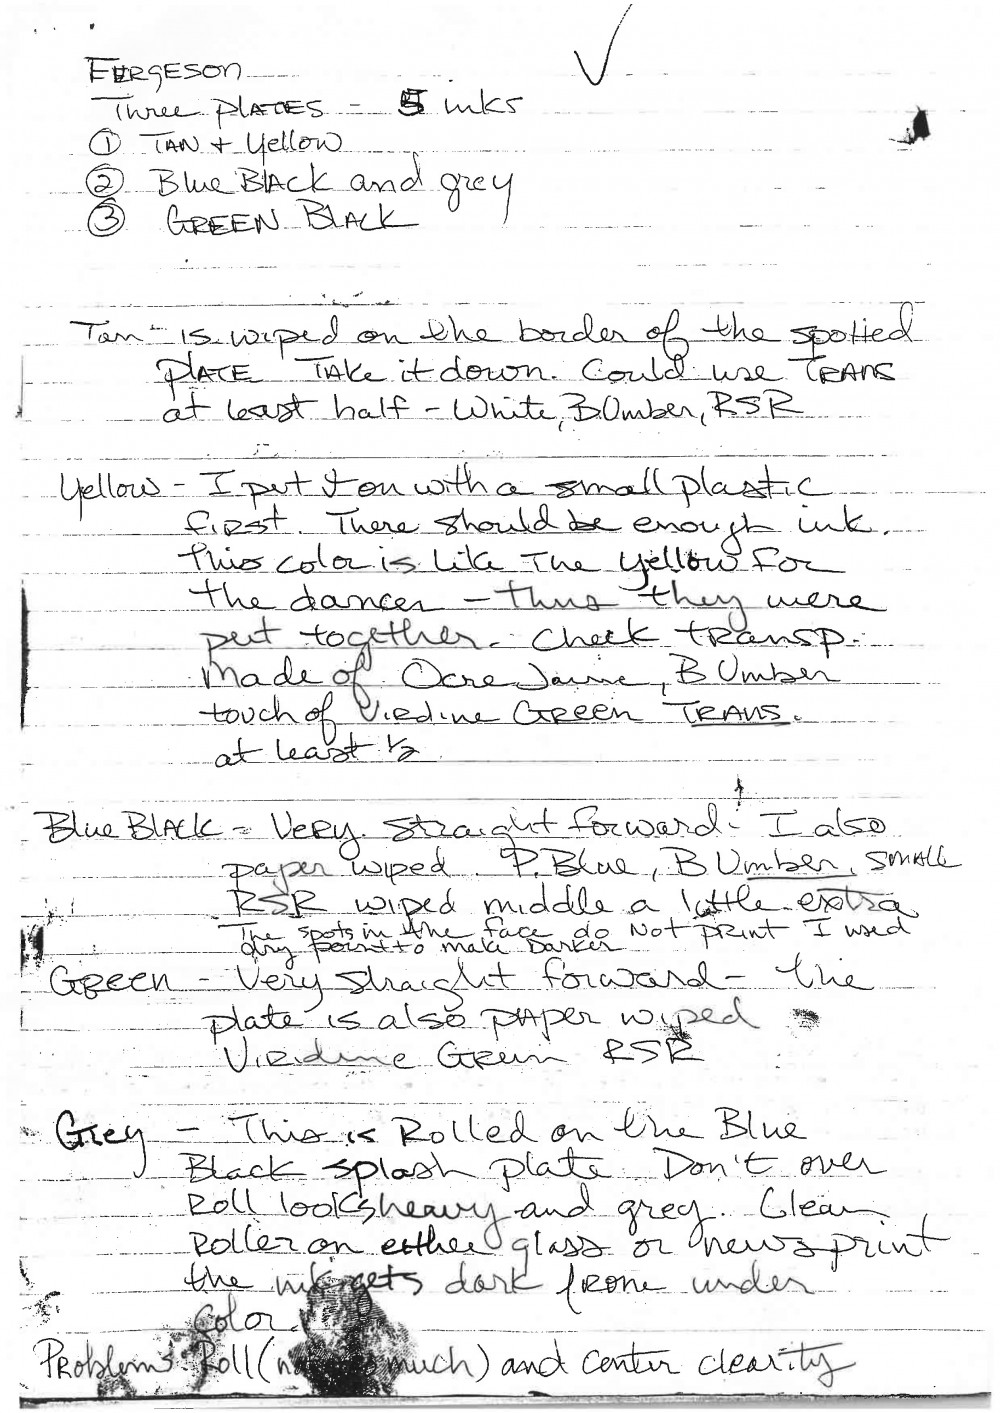 Fergeson
Three PLATES - 5 inks
① TAN + Yellow
② Blue BlACK and grey
③ GREEN BLACK
Tan - is wiped on the border of the spotted
PLATE TAKe it down. Could use TRANS
at least half - White, B.Umber, RSR
Yellow - I put it on with a small plastic
first. There should be enough ink.
This color is like The yellow for
the dancer - thus they were
put together. Check transp.
Made of Ocre Jaune, B Umber
touch of Virdine GREEN TRANS.
at least 1/2
Blue BLACK = Very straight forward - I also
paper wiped. P. Blue, B Umber, SMALL
RSR wiped middle a little extra
The spots in the face do Not print I used
dry point to make Darker
GREEN - Very straight forward - the
plate is also PAPER wiped
Viridine Green RSR
Grey - This is Rolled on the Blue
Black splash plate. Don't over
Roll looks heavy and grey. Clean
Roller on either glass or newsprint
the ink gets dark frome under
color.
Problems: Roll ( much) and center clearity